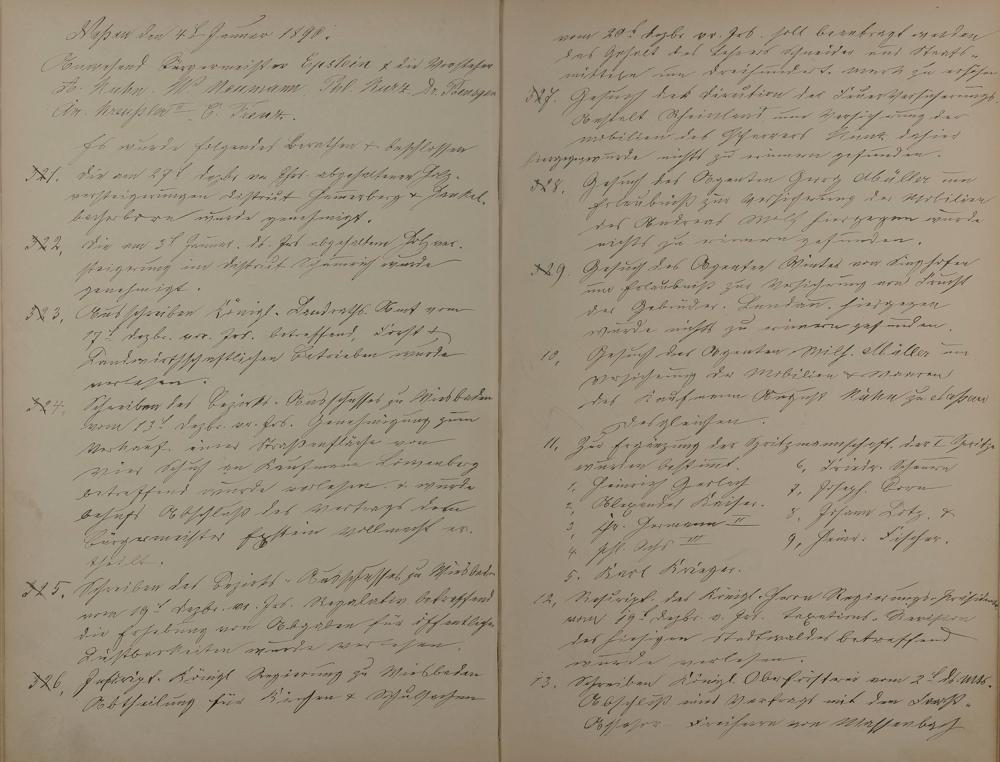 Nassau den 4t Januar 1890.
Anwesend Bürgermeister Epstein & die Vorsteher
A. Kuhn. Wm Neumann. Phl. Kurz. Dr.
Chr. II. C. Trenz.
Es wurde folgendes berathen & beschlossen
1. Die am 27t Dezbr. v. Jhrs. abgehaltenen Holz-
versteigerungen Distrikt &
wurde genehmigt.
2, Die am 3t Januar. ds. Jrs abgehaltene Holzver-
steigerung im Distrikt wurde
genehmigt.
3, Ausschreiben Königl. Landraths-Amt vom
17t Dezbr. vor. Jrs. betreffend, Forst &
Landwirthschaftlichen Betrieben wurde
verlesen.
4. Schreiben des Bezirks-Ausschusses zu Wiesbaden
vom 13t Dezbr. v. Jrs. Genehmigung zum
Verkauf einer Straßenfläche von
vier Schuh an Kaufmann Löwenberg
betreffend wurde verlesen. & wurde
behufs Abschluß des Vertrags dem
Bürgermeister Epstein Vollmacht er-
theilt.
5. Schreiben des Bezirks-Ausschusses zu Wiesbaden
vom 19t Dezbr. v. Jrs. Regulativ betreffend
die Erhebung von Abgaben für öffentliche
Lustbarkeiten wurde verlesen.
6, Rescript. Königl Regierung zu Wiesbaden
Abtheilung für Kirchen & Schulsachen
vom 20t Dezbr. vr. Jrs. soll beantragt werden
das Gehalt des Lehrers Schneider aus Staats-
mitteln um dreihundert Mark zu erhöhen
7. Gesuch der Direction der Feuerversicherungs
Anstalt Rheinland um Versicherung der
Mobilien des Pfarrers Kunz dahier
hiergegen wurde nichts zu erinnern gefunden.
8. Gesuch des Agenten Georg Müller um
Erlaubniß zur Versicherung der Mobilien
des Andreas Wolf hiergegen wurde
nichts zu erinnern gefunden.
9. Gesuch des Agenten Winter von Singhofen
um Erlaubniß zur Versicherung von Frucht
der Gebrüder Landau. hiergegen
wurde nichts zu erinnern gefunden.
10, Gesuch des Agenten Wilh. Müller um
Versicherung der Mobilien & Waaren
des Kaufmann August Kuhn zu Nassau
Desgleichen.
11, Zur Ergänzung der Spritzmannschaft der I Spritze
wurden bestimmt.
1, Heinrich Gerlach
2, Alexander Kaiser.
3, Chr. Hermann II
4. Phl. Ochs III
5. Karl Krieger.
6, Friedr. Scheuern
7, Joseph. Born
8, Johann Lotz &
9, Heinr. Fischer.
12, Rescript. des Königl. Herrn Regierungs-Präsidenten
vom 19t Dezbr. v. Jrs. Taxations-Revision
des hiesigen Stadtwaldes betreffend
wurde verlesen.
13. Schreiben Königl. Oberförsterei vom 2t ds. Mts.
Abschluß eines Vertrags mit dem Forst-
Assessor Freiherrn von Massenbach